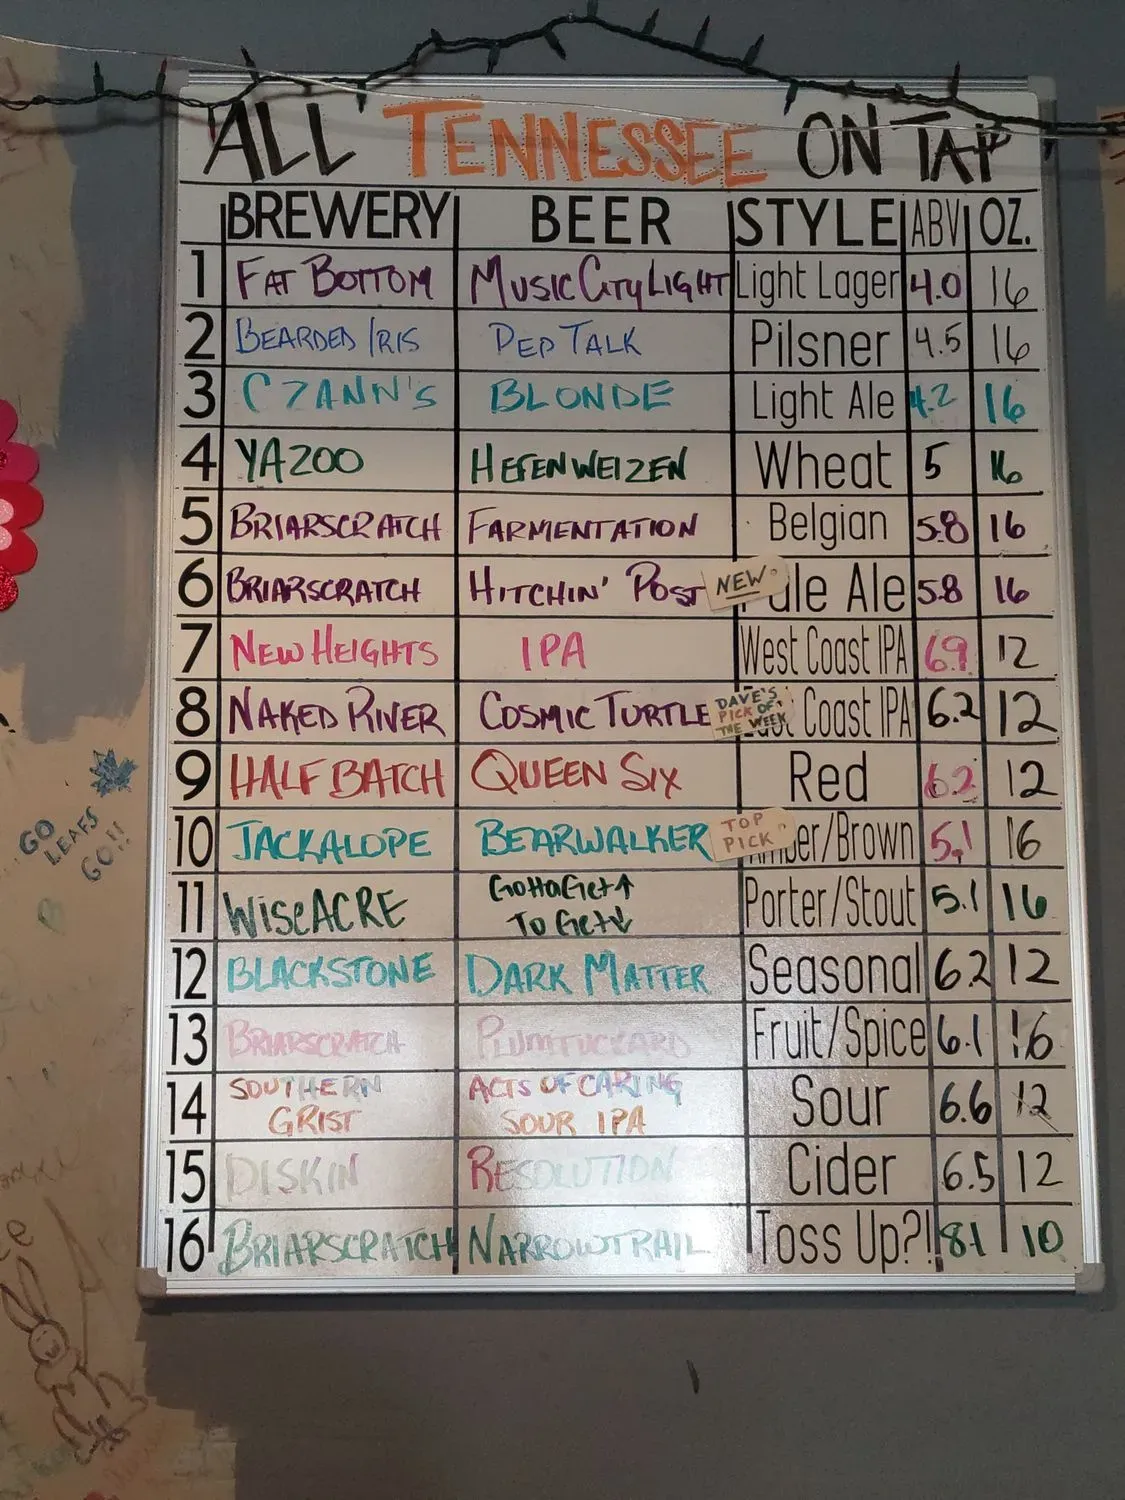 ALL TENNESSEE ON TAP
BREWERY BEER STYLE ABV OZ.
1 FAT BOTTOM MUSIC CITY LIGHT Light Lager 4.0 16
2 BEARDED IRIS PEP TALK Pilsner 4.5 16
3 CZANN'S BLONDE Light Ale 4.2 16
4 YAZOO HEFENWEIZEN Wheat 5 16
5 BRIARSCRATCH FARMENTATION Belgian 5.8 16
6 BRIARSCRATCH HITCHIN' POST NEW Pale Ale 5.8 16
7 NEW HEIGHTS IPA West Coast IPA 6.9 12
8 NAKED RIVER COSMIC TURTLE DAVE'S PICK OF THE WEEK East Coast IPA 6.2 12
9 HALF BATCH QUEEN SIX Red 6.2 12
10 JACKALOPE BEARWALKER TOP PICK Amber/Brown 5.1 16
11 WISEACRE GOTTA GET↑ Porter/Stout 5.1 16
TO GET↓
12 BLACKSTONE DARK MATTER Seasonal 6.2 12
13 BRIARSCRATCH PLUMTUCKARD Fruit/Spice 6.1 16
14 SOUTHERN ACTS OF CARING Sour 6.6 12
GRIST SOUR IPA
15 DISKIN RESOLUTION Cider 6.5 12
16 BRIARSCRATCH NARROWTRAIL Toss Up?! 8.1 10
GO
LEAFS
GO!!